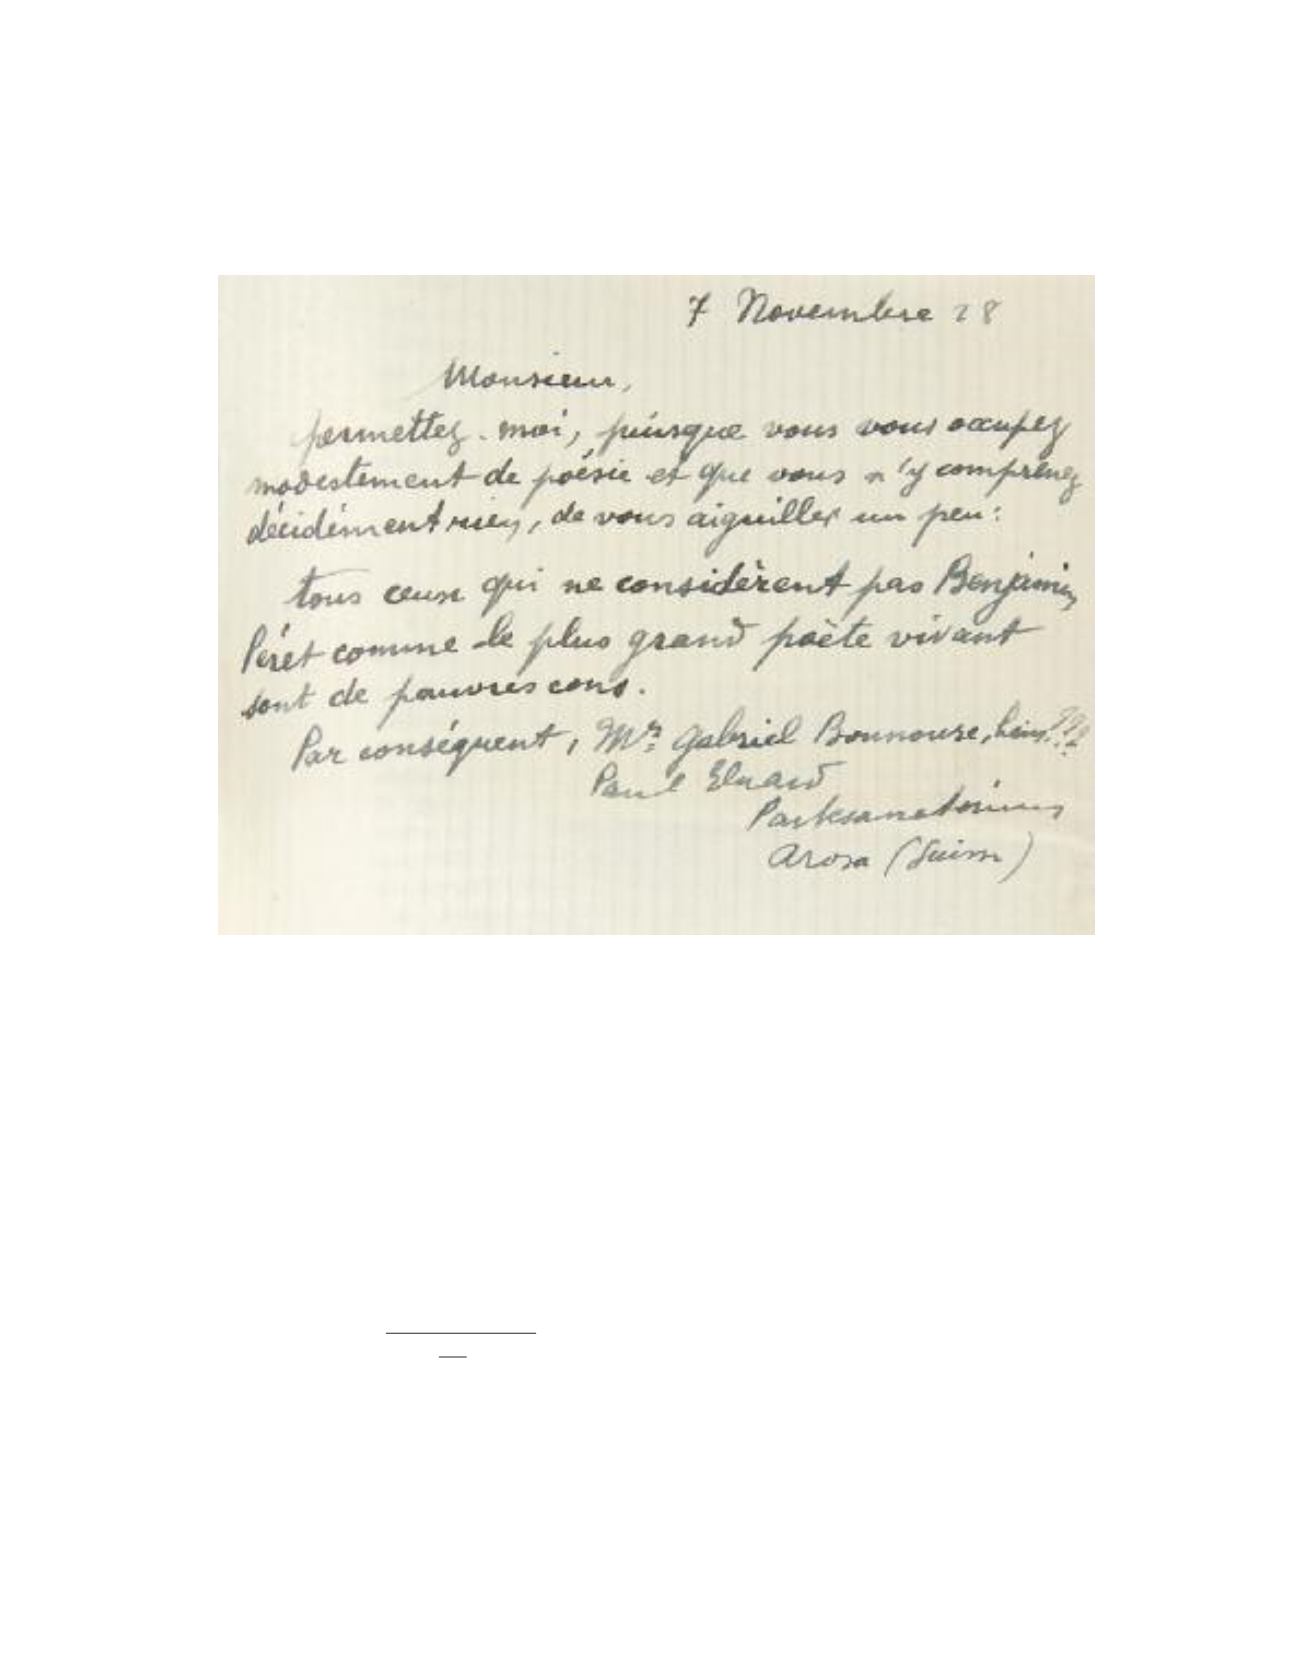 7 Novembre 28
Monsieur,
permettez-moi, puisque vous vous occupez
modestement de poésie et que vous n'y comprenez
décidément rien, de vous aiguiller un peu :
tous ceux qui ne considèrent pas Benjamin
Péret comme le plus grand poète vivant
sont de pauvres cons.
Par conséquent, Mr. Gabriel Bounoure, hein???
Paul Eluard
Parksanatorium
Arosa (Suisse)